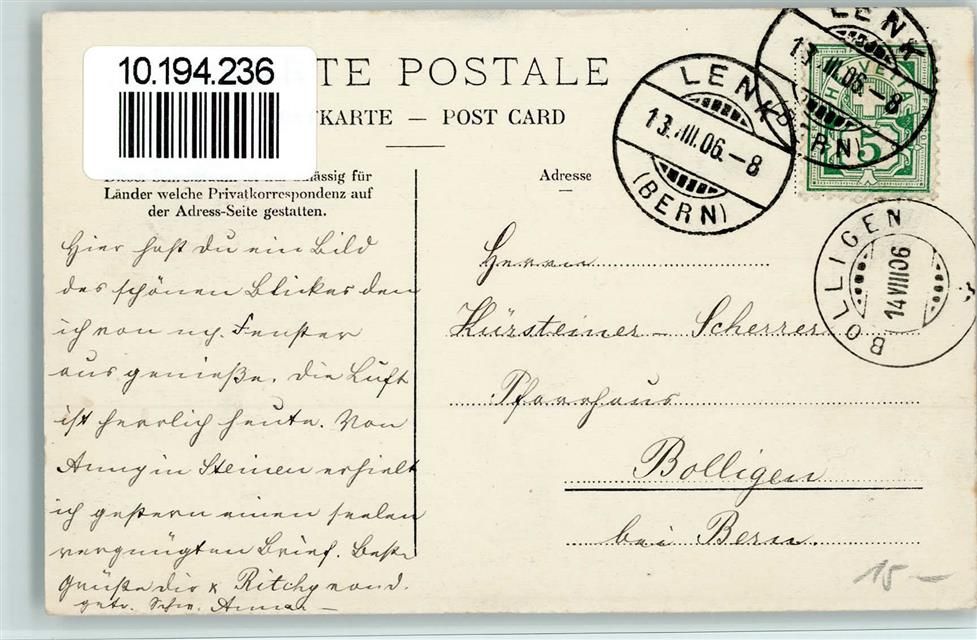 10.194.236
TE POSTALE
KARTE — POST CARD
ässig für
Länder welche Privatkorrespondenz auf
der Adress-Seite gestatten.
Adresse
LENK
13.VIII.06.–8
(BERN)
LENK
13.VIII.06.–8
(BERN)
HELVETIA
5
BOLLIGEN
14 VIII 06
Hier hast du ein Bild
des schönen Blickes den
ich von m. Fenster
aus genieße. Die Luft
ist herrlich heute. Von
Anny in Steinen erhielt
ich gestern einen seelen
vergnügten Brief. Beste
Grüße dir & Ritchy von d.
getr. Schw. Anna –
Herrn
Kürsteiner – Scherrer
Pfarrhaus
Bolligen
bei Bern.
15 –